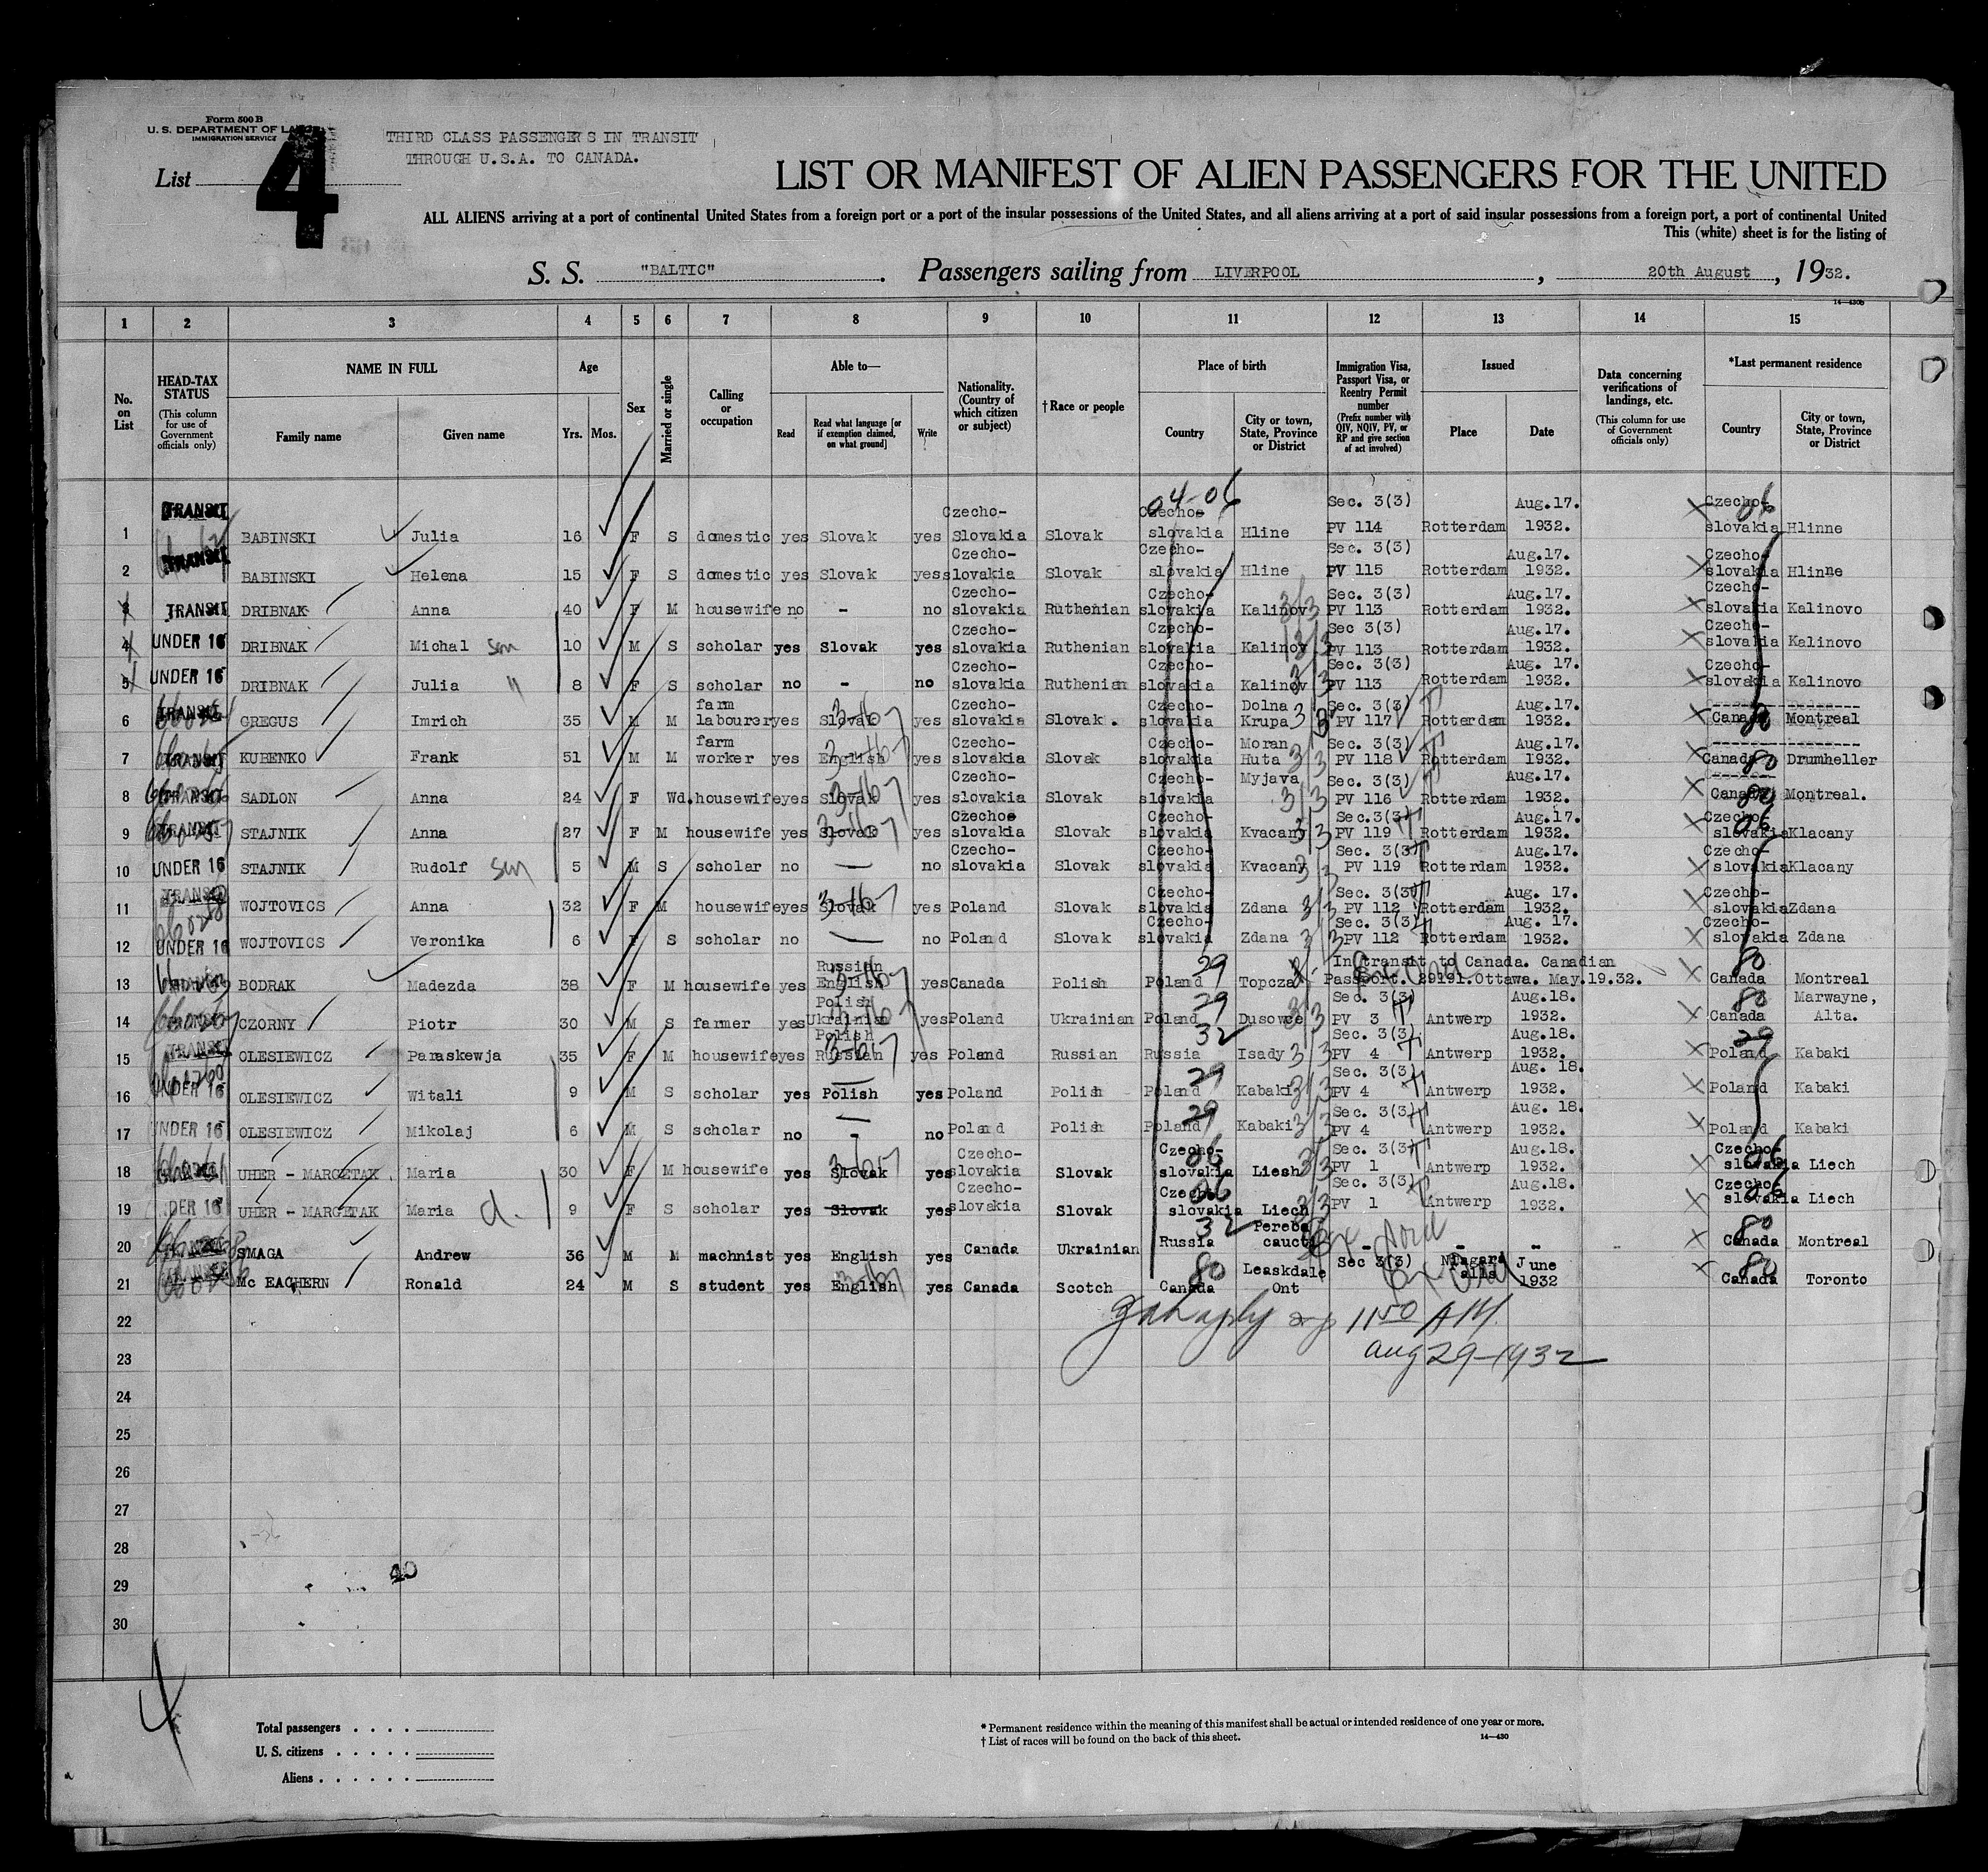 Form 500 B
U. S. DEPARTMENT OF
IMMIGRATION SERVICE
THIRD CLASS PASSENGERS IN TRANSIT
THROUGH U.S.A. TO CANADA.
List 4
LIST OR MANIFEST OF ALIEN PASSENGERS FOR THE UNITED
ALL ALIENS arriving at a port of continental United States from a foreign port or a port of the insular possessions of the United States, and all aliens arriving at a port of said insular possessions from a foreign port, a port of continental United
This (white) sheet is for the listing of
S. S. "BALTIC". Passengers sailing from LIVERPOOL, 20th August, 1932.
14-430b
1 2 3 4 5 6 7 8 9 10 11 12 13 14 15
No. on List
HEAD-TAX STATUS (This column for use of Government officials only)
NAME IN FULL Family name Given name
Age Yrs. Mos.
Sex
Married or single
Calling or occupation
Able to— Read Read what language [or if exemption claimed, on what ground] Write
Nationality. (Country of which citizen or subject)
† Race or people
Place of birth Country City or town, State, Province or District
Immigration Visa, Passport Visa, or Reentry Permit number (Prefix number with QIV, NQIV, PV, or RP and give section of act involved)
Issued Place Date
Data concerning verifications of landings, etc. (This column for use of Government officials only)
*Last permanent residence Country City or town, State, Province or District
04-06
1 TRANSIT BABINSKI Julia 16 F S domestic yes Slovak yes Czecho-Slovakia Slovak Czecho-slovakia Hline Sec. 3(3) PV 114 Rotterdam Aug.17. 1932. Czecho-slovakia 06 Hlinne
2 TRANSIT BABINSKI Helena 15 F S domestic yes Slovak yes Czecho-slovakia Slovak Czecho-slovakia Hline Sec. 3(3) PV 115 Rotterdam Aug.17. 1932. Czecho-slovakia Hlinne
3 TRANSIT DRIBNAK Anna 40 F M housewife no - no Czecho-slovakia Ruthenian Czecho-slovakia Kalinov Sec. 3(3) PV 113 Rotterdam Aug.17. 1932. Czecho-slovakia Kalinovo
4 UNDER 16 DRIBNAK Michal son 10 M S scholar yes Slovak yes Czecho-slovakia Ruthenian Czecho-slovakia Kalinov Sec 3(3) PV 113 Rotterdam Aug.17. 1932. Czecho-slovakia Kalinovo
5 UNDER 16 DRIBNAK Julia " 8 F S scholar no - no Czecho-slovakia Ruthenian Czecho-slovakia Kalinov Sec. 3(3) PV 113 Rotterdam Aug. 17. 1932. Czecho-slovakia Kalinovo
6 TRANSIT GREGUS Imrich 35 M M farm labourer yes Slovak yes Czecho-slovakia Slovak. Czecho-slovakia Dolna Krupa Sec. 3(3) PV 117 Rotterdam Aug.17. 1932. Canada 80 Montreal
7 TRANSIT KUBENKO Frank 51 M M farm worker yes English yes Czecho-slovakia Slovak Czecho-slovakia Moran Huta Sec. 3(3) PV 118 Rotterdam Aug.17. 1932. Canada 80 Drumheller
8 TRANSIT SADLON Anna 24 F Wd. housewife yes Slovak yes Czecho-slovakia Slovak Czecho-slovakia Myjava Sec. 3(3) PV 116 Rotterdam Aug.17. 1932. Canada 80 Montreal.
9 TRANSIT STAJNIK Anna 27 F M housewife yes Slovak yes Czecho-slovakia Slovak Czecho-slovakia Kvacany Sec.3(3) PV 119 Rotterdam Aug.17. 1932. Czecho-slovakia 06 Klacany
10 UNDER 16 STAJNIK Rudolf son 5 M S scholar no — no Czecho-slovakia Slovak Czecho-slovakia Kvacany Sec. 3(3) PV 119 Rotterdam Aug.17. 1932. Czecho-slovakia Klacany
11 TRANSIT WOJTOVICS Anna 32 F M housewife yes Slovak yes Poland Slovak Czecho-slovakia Zdana Sec. 3(3) PV 112 Rotterdam Aug. 17. 1932. Czecho-slovakia Zdana
12 UNDER 16 WOJTOVICS Veronika 6 F S scholar no — no Poland Slovak Czecho-slovakia Zdana Sec. 3(3) PV 112 Rotterdam Aug. 17. 1932. Czecho-slovakia Zdana
13 BODRAK Madezda 38 F M housewife yes Russian English yes Canada Polish Poland 29 Topcza In transit to Canada. Canadian Passport. 29191.Ottawa. May.19.32. Canada 80 Montreal
14 CZORNY Piotr 30 M S farmer yes Polish Ukrainian yes Poland Ukrainian Poland 29 Dusowce Sec. 3(3) PV 3 Antwerp Aug.18. 1932. Canada 80 Marwayne, Alta.
15 TRANSIT OLESIEWICZ Paraskewja 35 F M housewife yes Polish Russian yes Poland Russian Russia 32 Isady Sec. 3(3) PV 4 Antwerp Aug.18. 1932. Poland 29 Kabaki
16 UNDER 16 OLESIEWICZ Witali 9 M S scholar yes Polish yes Poland Polish Poland 29 Kabaki Sec. 3(3) PV 4 Antwerp Aug. 18. 1932. Poland Kabaki
17 UNDER 16 OLESIEWICZ Mikolaj 6 M S scholar no - no Poland Polish Poland 29 Kabaki Sec. 3(3) PV 4 Antwerp Aug. 18. 1932. Poland Kabaki
18 UHER - MARCETAK Maria 30 F M housewife yes Slovak yes Czecho-slovakia Slovak Czecho-slovakia 06 Liesh Sec. 3(3) PV 1 Antwerp Aug.18. 1932. Czecho-slovakia 06 Liech
19 UNDER 16 UHER - MARCETAK Maria d. 9 F S scholar yes Slovak yes Czecho-slovakia Slovak Czecho-slovakia 06 Liech Sec. 3(3) PV 1 Antwerp Aug.18. 1932. Czecho-slovakia 06 Liech
20 TRANSIT SMAGA Andrew 36 M M machnist yes English yes Canada Ukrainian Russia 32 Pereba caucti - - - Canada 80 Montreal
21 TRANSIT Mc EACHERN Ronald 24 M S student yes English yes Canada Scotch Canada 80 Leaskdale Ont Sec 3(3) Niagara Falls June 1932 Canada 80 Toronto
22 1150 AM.
23 Aug 29-1932
24
25
26
27
28
29
30
40
4
Total passengers . . . .
U. S. citizens . . . . .
Aliens . . . . . .
* Permanent residence within the meaning of this manifest shall be actual or intended residence of one year or more.
† List of races will be found on the back of this sheet.
14-430